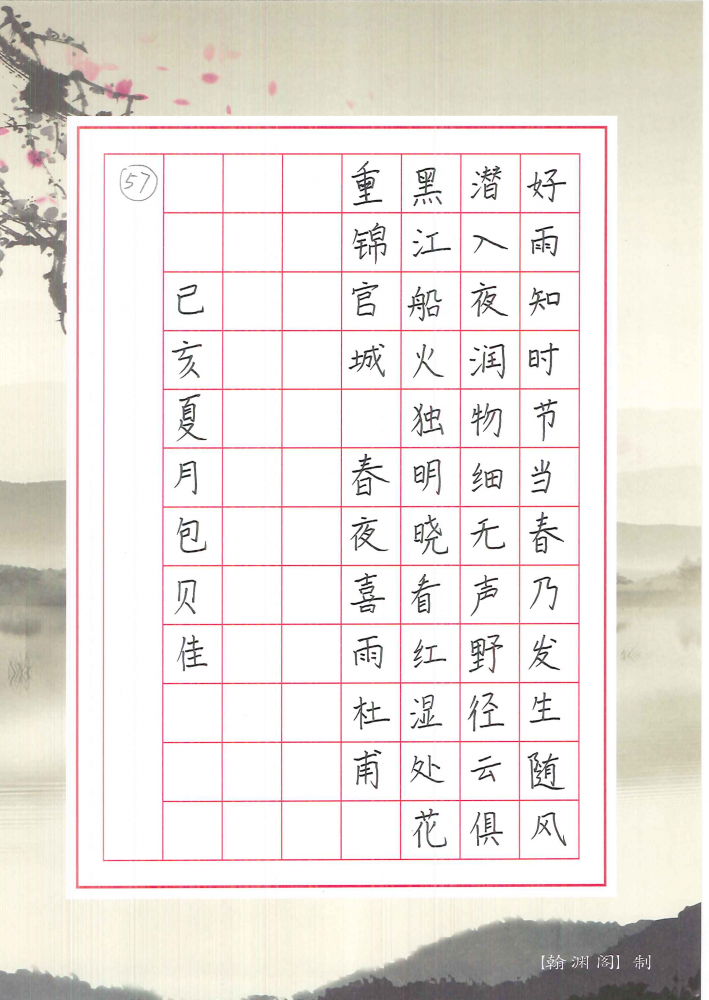 好雨知时节当春乃发生随风
潜入夜润物细无声野径云俱
黑江船火独明晓看红湿处花
重锦官城 春夜喜雨杜甫
己亥夏月包贝佳
57
【翰渊阁】制